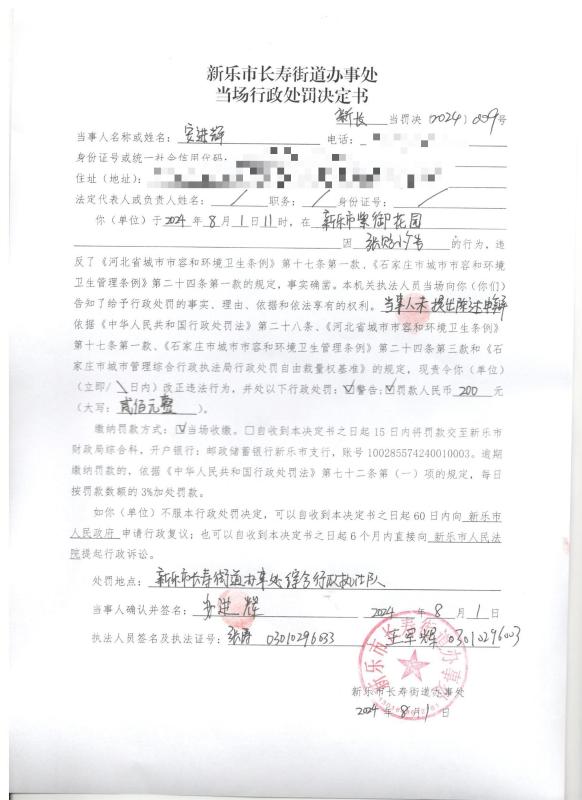 新乐市长寿街道办事处
当场行政处罚决定书
新长 当罚决〔2024〕009号
当事人名称或姓名：安进辉 电话：
身份证号或统一社会信用代码：
住址（地址）：
法定代表人或负责人姓名： / 职务： / 身份证号： /
你（单位）于2024年8月1日11时，在 新乐市紫御花园
因 张贴小广告 的行为，违
反了《河北省城市市容和环境卫生条例》第十七条第一款、《石家庄市城市市容和环境
卫生管理条例》第二十四条第一款的规定，事实确凿。本机关执法人员当场向你（你们）
告知了给予行政处罚的事实、理由、依据和依法享有的权利。当事人未提出陈述申辩
依据《中华人民共和国行政处罚法》第二十八条、《河北省城市市容和环境卫生条例》
第十七条第一款、《石家庄市城市市容和环境卫生管理条例》第二十四条第三款和《石
家庄市城市管理综合行政执法局行政处罚自由裁量权基准》的规定，现责令你（单位）
（立即/ \ 日内）改正违法行为，并处以下行政处罚：☑警告；☑罚款人民币 200 元
（大写： 贰佰元整 ）。
缴纳罚款方式：☑当场收缴。☐自收到本决定书之日起 15 日内将罚款交至新乐市
财政局综合科，开户银行：邮政储蓄银行新乐市支行，账号 100285574240010003。逾期
缴纳罚款的，依据《中华人民共和国行政处罚法》第七十二条第（一）项的规定，每日
按罚款数额的 3%加处罚款。
如你（单位）不服本行政处罚决定，可以自收到本决定书之日起 60 日内向 新乐市
人民政府 申请行政复议；也可以自收到本决定书之日起 6 个月内直接向 新乐市人民法
院提起行政诉讼。
处罚地点： 新乐市长寿街道办事处综合行政执法队
当事人确认并签名： 安进辉 2024 年 8 月 1 日
执法人员签名及执法证号： 张涛 03010296033 王军辉 03010296003
新乐市长寿街道办事处
新乐市长寿街道办事处
2024年8月1日